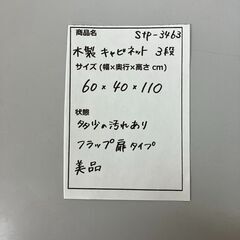 商品名 stp-3463
木製 キャビネット 3段
サイズ (幅×奥行×高さ cm)
60×40×110
状態
多少の汚れあり
フラップ扉タイプ
美品